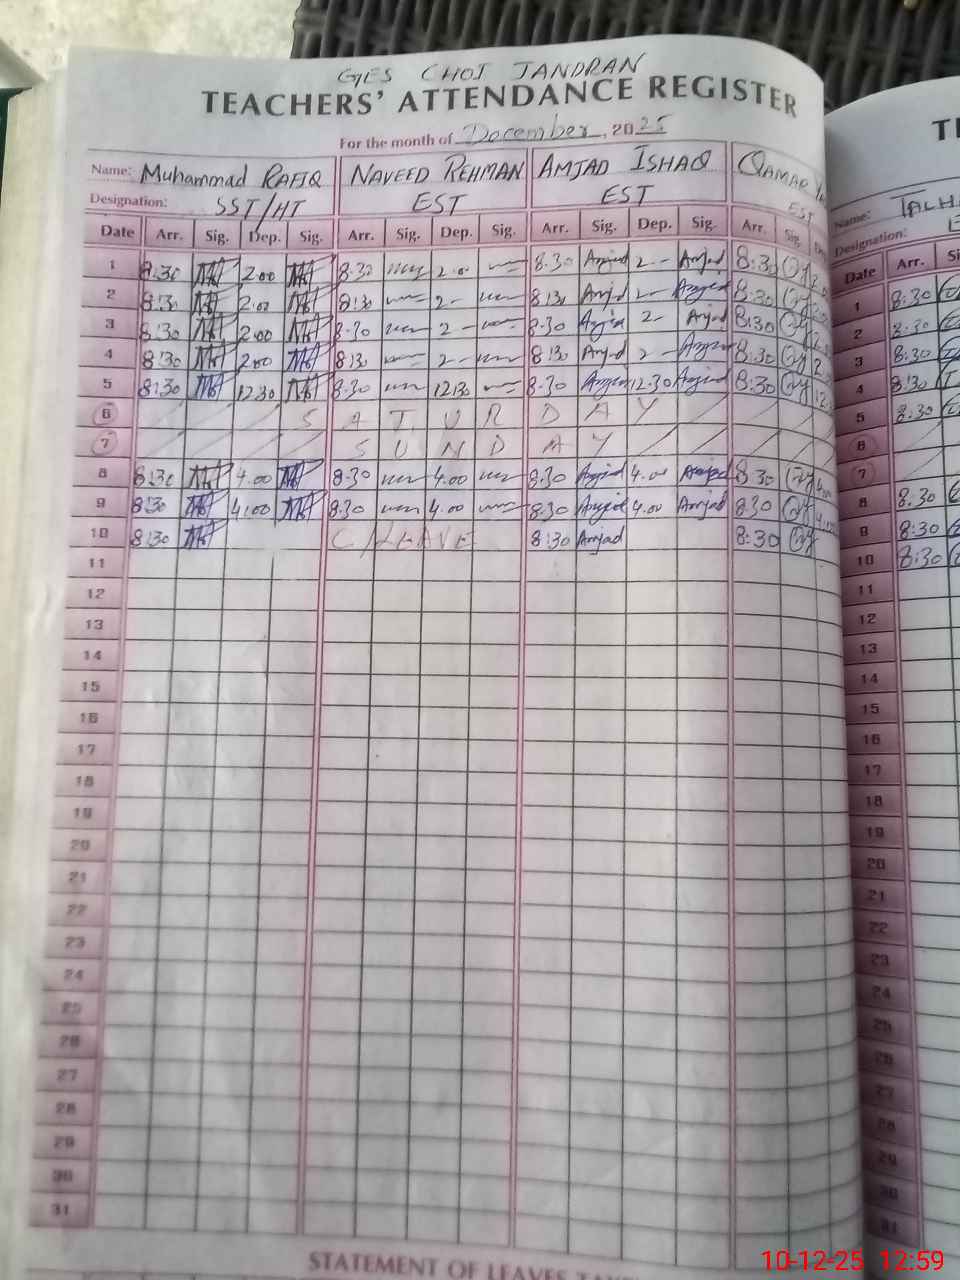 GES CHOI JANDRAN
TEACHERS' ATTENDANCE REGISTER
For the month of December, 2025
Name: Muhammad RAFIQ NAVEED REHMAN AMJAD ISHAQ QAMAR
Designation: SST/HT EST EST EST
Date Arr. Sig. Dep. Sig. Arr. Sig. Dep. Sig. Arr. Sig. Dep. Sig. Arr. Sig.
1 8:30 2:00 8.30 2:00 8.30 Amjad 2- Amjad 8:30
2 8:30 2:00 8:30 2- 8:30 Amjad 2- Amjad 8:30
3 8:30 2:00 8-30 2- 8-30 Amjad 2- Amjad 8:30
4 8:30 2:00 8:30 2- 8:30 Amjad 2- Amjad 8:30
5 8:30 12:30 8-30 12:30 8-30 Amjad 12-30 Amjad 8:30
6 SATURDAY
7 SUNDAY
8 8:30 4.00 8.30 4.00 8.30 Amjad 4.00 Amjad 8.30
9 8:30 4:00 8.30 4.00 8.30 Amjad 4.00 Amjad 8.30
10 8:30 C/LEAVE 8:30 Amjad 8:30
11
12
13
14
15
16
17
18
19
20
21
22
23
24
25
26
27
28
29
30
31
STATEMENT OF LEAVES
Name:
Designation:
Date Arr.
1 8:30
2 8:30
3 8:30
4 8:30
5 8:30
6
7
8 8:30
9 8:30
10 8:30
11
12
13
14
15
16
17
18
19
20
21
22
23
24
25
26
27
28
29
30
31
10-12-25 12:59